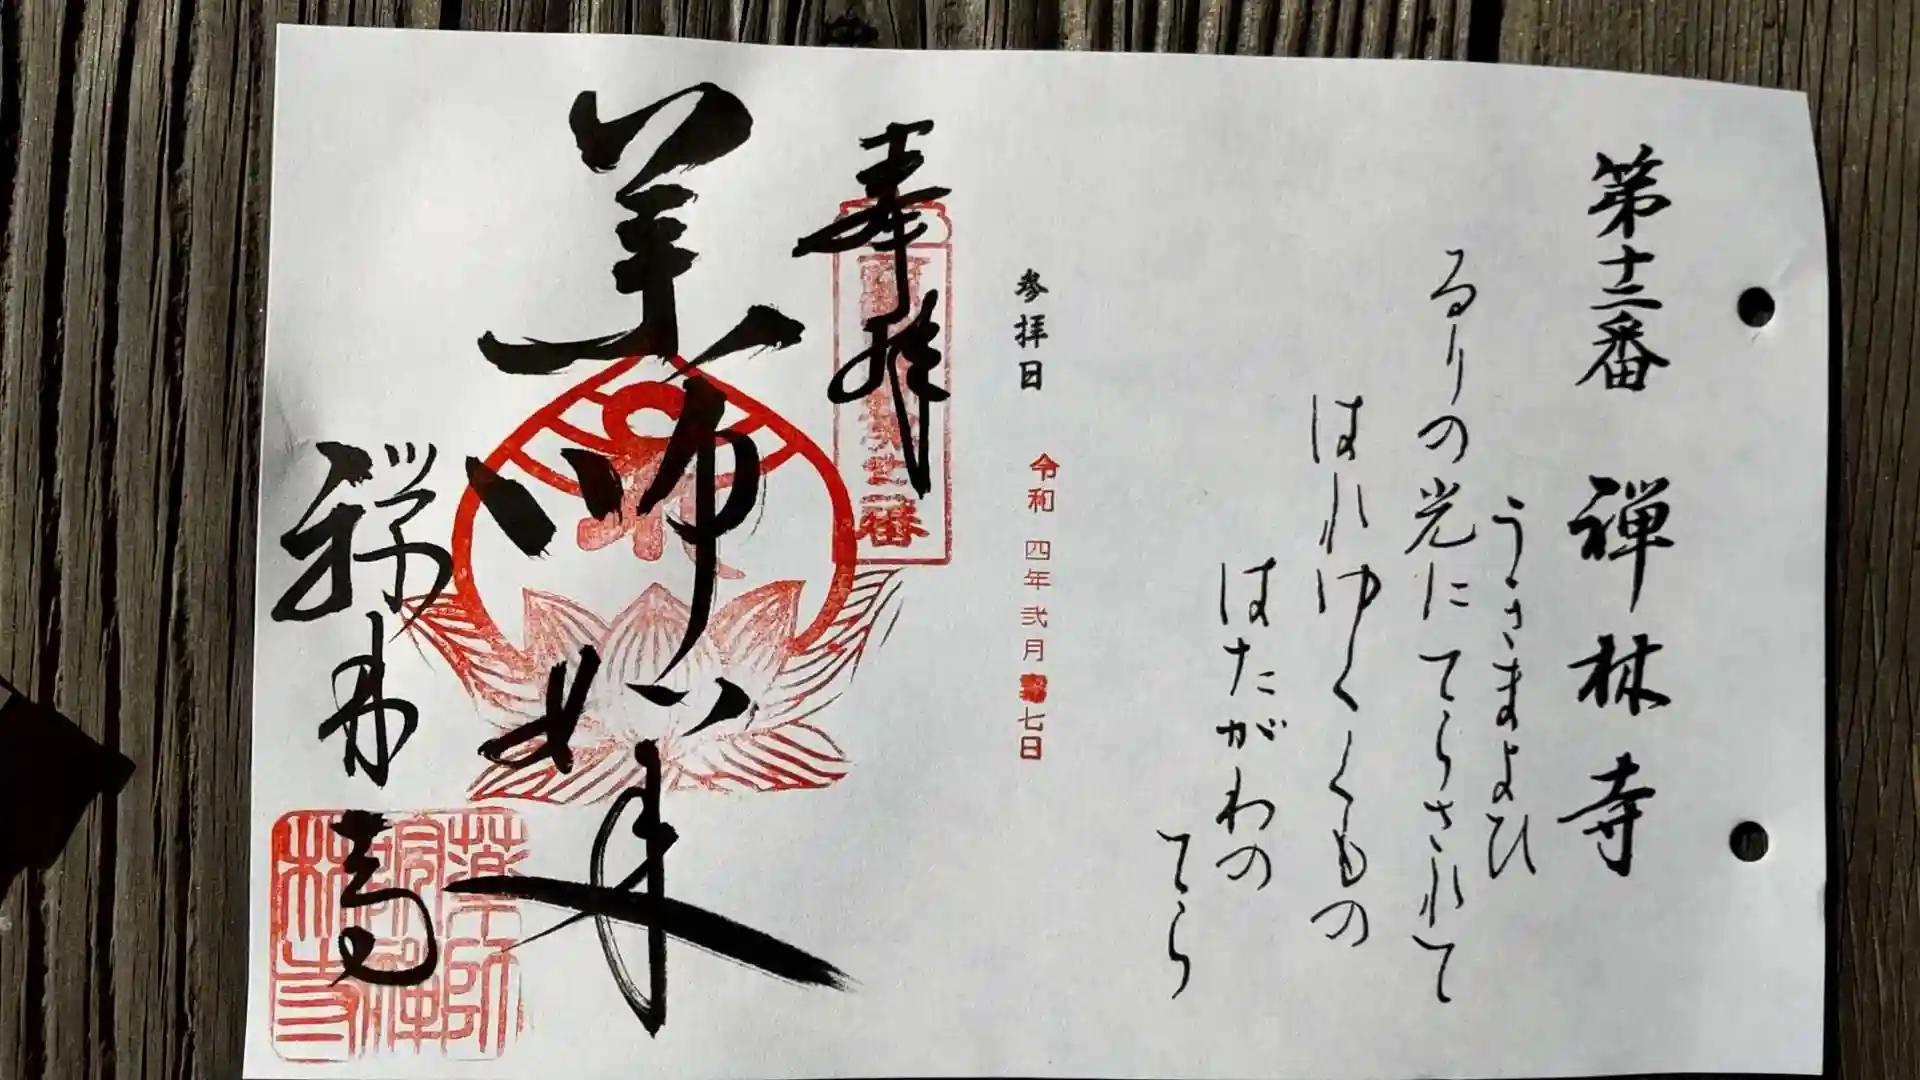 第十二番 禅林寺
うきさまよひ
るりの光にてらされて
はれゆくくもの
はたがわの
てら
参拝日 令和四年弐月七日
奉拝
薬師如来
禅林寺